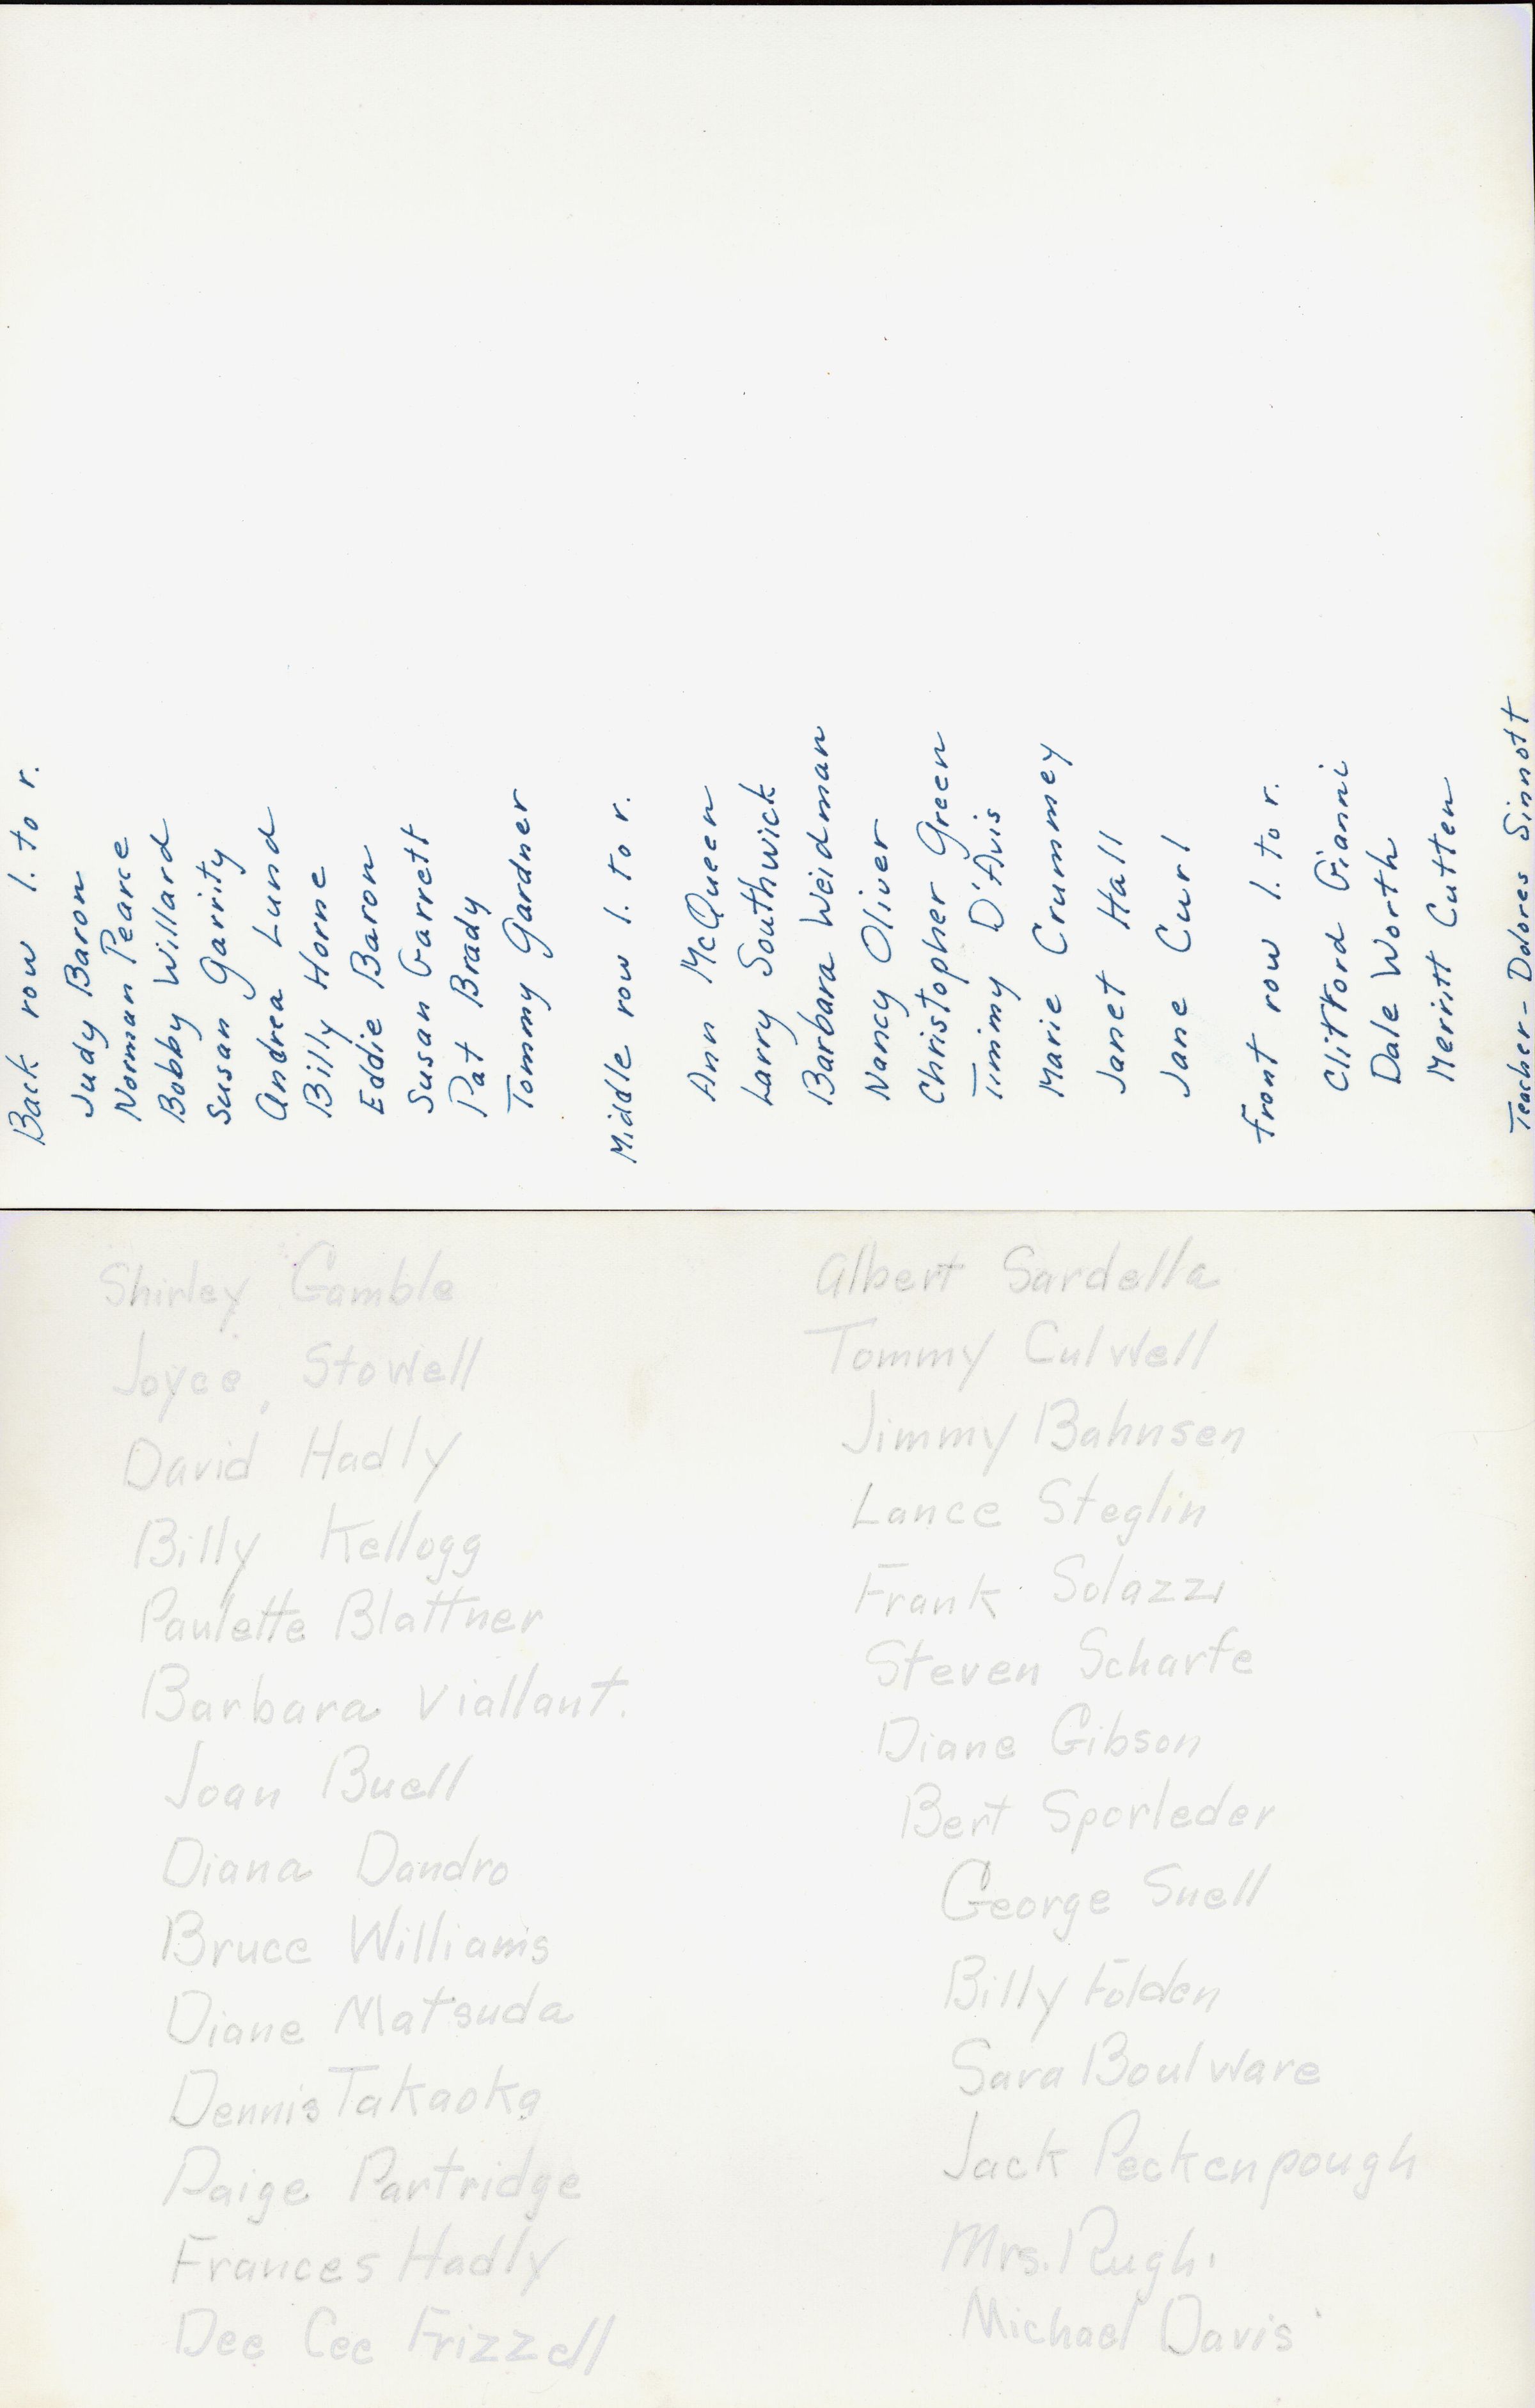 Back row l. to r.
Judy Baron
Norman Pearce
Bobby Willard
Susan Garrity
Andrea Lund
Billy Horne
Eddie Baron
Susan Garrett
Pat Brady
Tommy Gardner
Middle row l. to r.
Ann McQueen
Larry Southwick
Barbara Weidman
Nancy Oliver
Christopher Green
Timmy D'Avis
Marie Crummey
Janet Hall
Jane Curl
Front row l. to r.
Clifford Gianni
Dale Worth
Merritt Cutten
Teacher - Dolores Sinnott
Shirley Gamble
Joyce Stowell
David Hadly
Billy Kellogg
Paulette Blattner
Barbara Viallant.
Joan Buell
Diana Dandro
Bruce Williams
Diane Matsuda
Dennis Takaoka
Paige Partridge
Frances Hadly
Dee Cee Frizzell
Albert Sardella
Tommy Culwell
Jimmy Bahnsen
Lance Steglin
Frank Solazzi
Steven Scharfe
Diane Gibson
Bert Sporleder
George Snell
Billy Folden
Sara Boulware
Jack Peckenpough
Mrs. Rugh.
Michael Davis